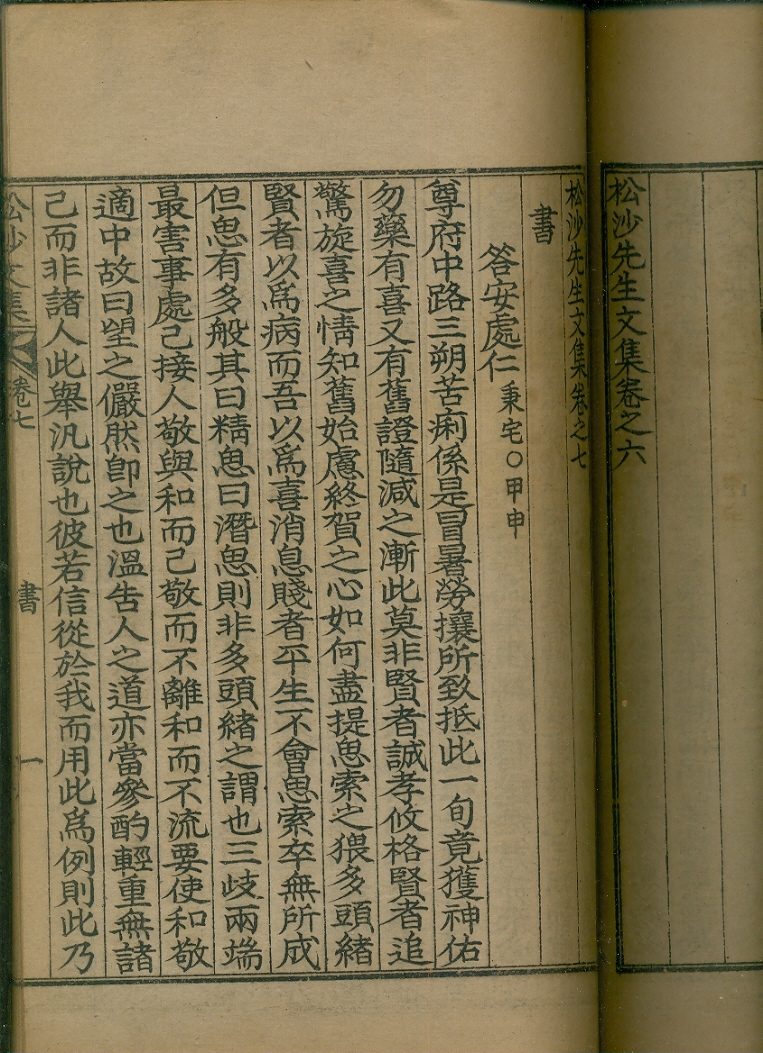 松沙先生文集卷之六
松沙先生文集卷之七
書
答安處仁秉宅○甲申
尊府中路三朔苦痢係是冒暑勞攘所致抵此一旬竟獲神佑
勿藥有喜又有舊證隨減之漸此莫非賢者誠孝攸格賢者追
驚旋喜之情知舊始慮終賀之心如何盡提思索之猥多頭緒
賢者以爲病而吾以爲喜消息賤者平生不會思索卒無所成
但思有多般其曰精思曰潛思則非多頭緖之謂也三歧兩端
最害事處己接人敬與和而己敬而不離和而不流要使和敬
適中故曰望之儼然卽之也溫告人之道亦當參酌輕重無諸
己而非諸人此擧汎說也彼若信從於我而用此爲例則此乃
松沙文集 卷七 書 一